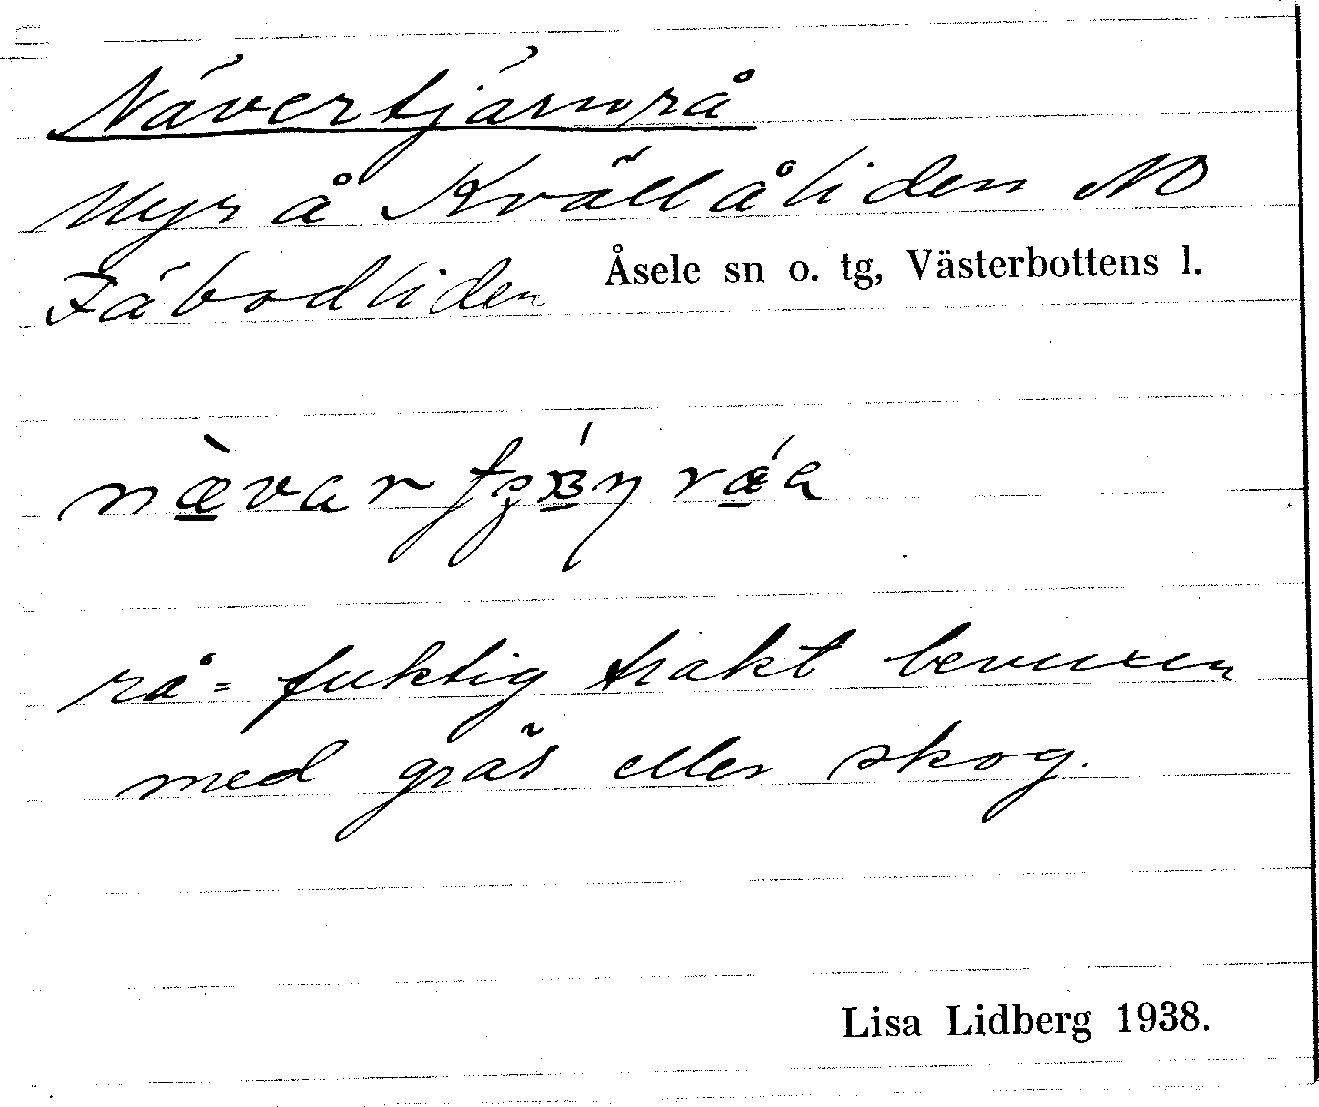 Nävertjärnrå
Myr å Kvällåliden NO
Fäbodliden Åsele sn o. tg, Västerbottens l.
rå = fuktig trakt bevuxen
med gräs eller skog.
Lisa Lidberg 1938.